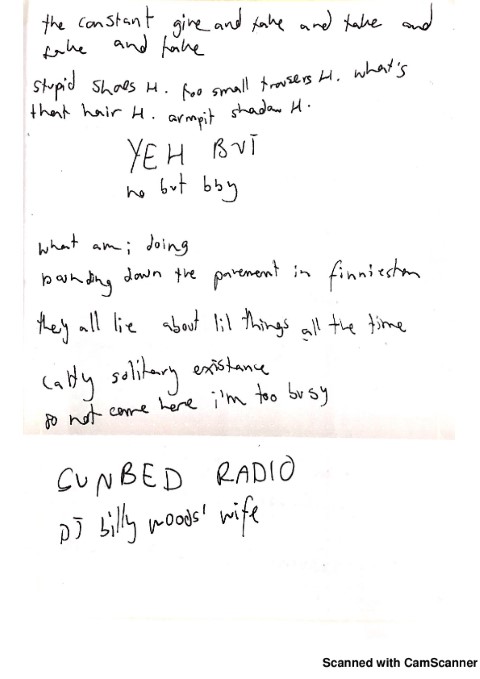 the constant give and take and take and
take and take
stupid shoes H. too small trousers H. what's
that hair H. armpit shadow H.
YEH BUT
no but bby
what am i doing
pounding down the pavement in finnieston
they all lie about lil things all the time
solitary existance
do not come here i'm too busy
SUNBED RADIO
DJ billy woods' wife
Scanned with CamScanner